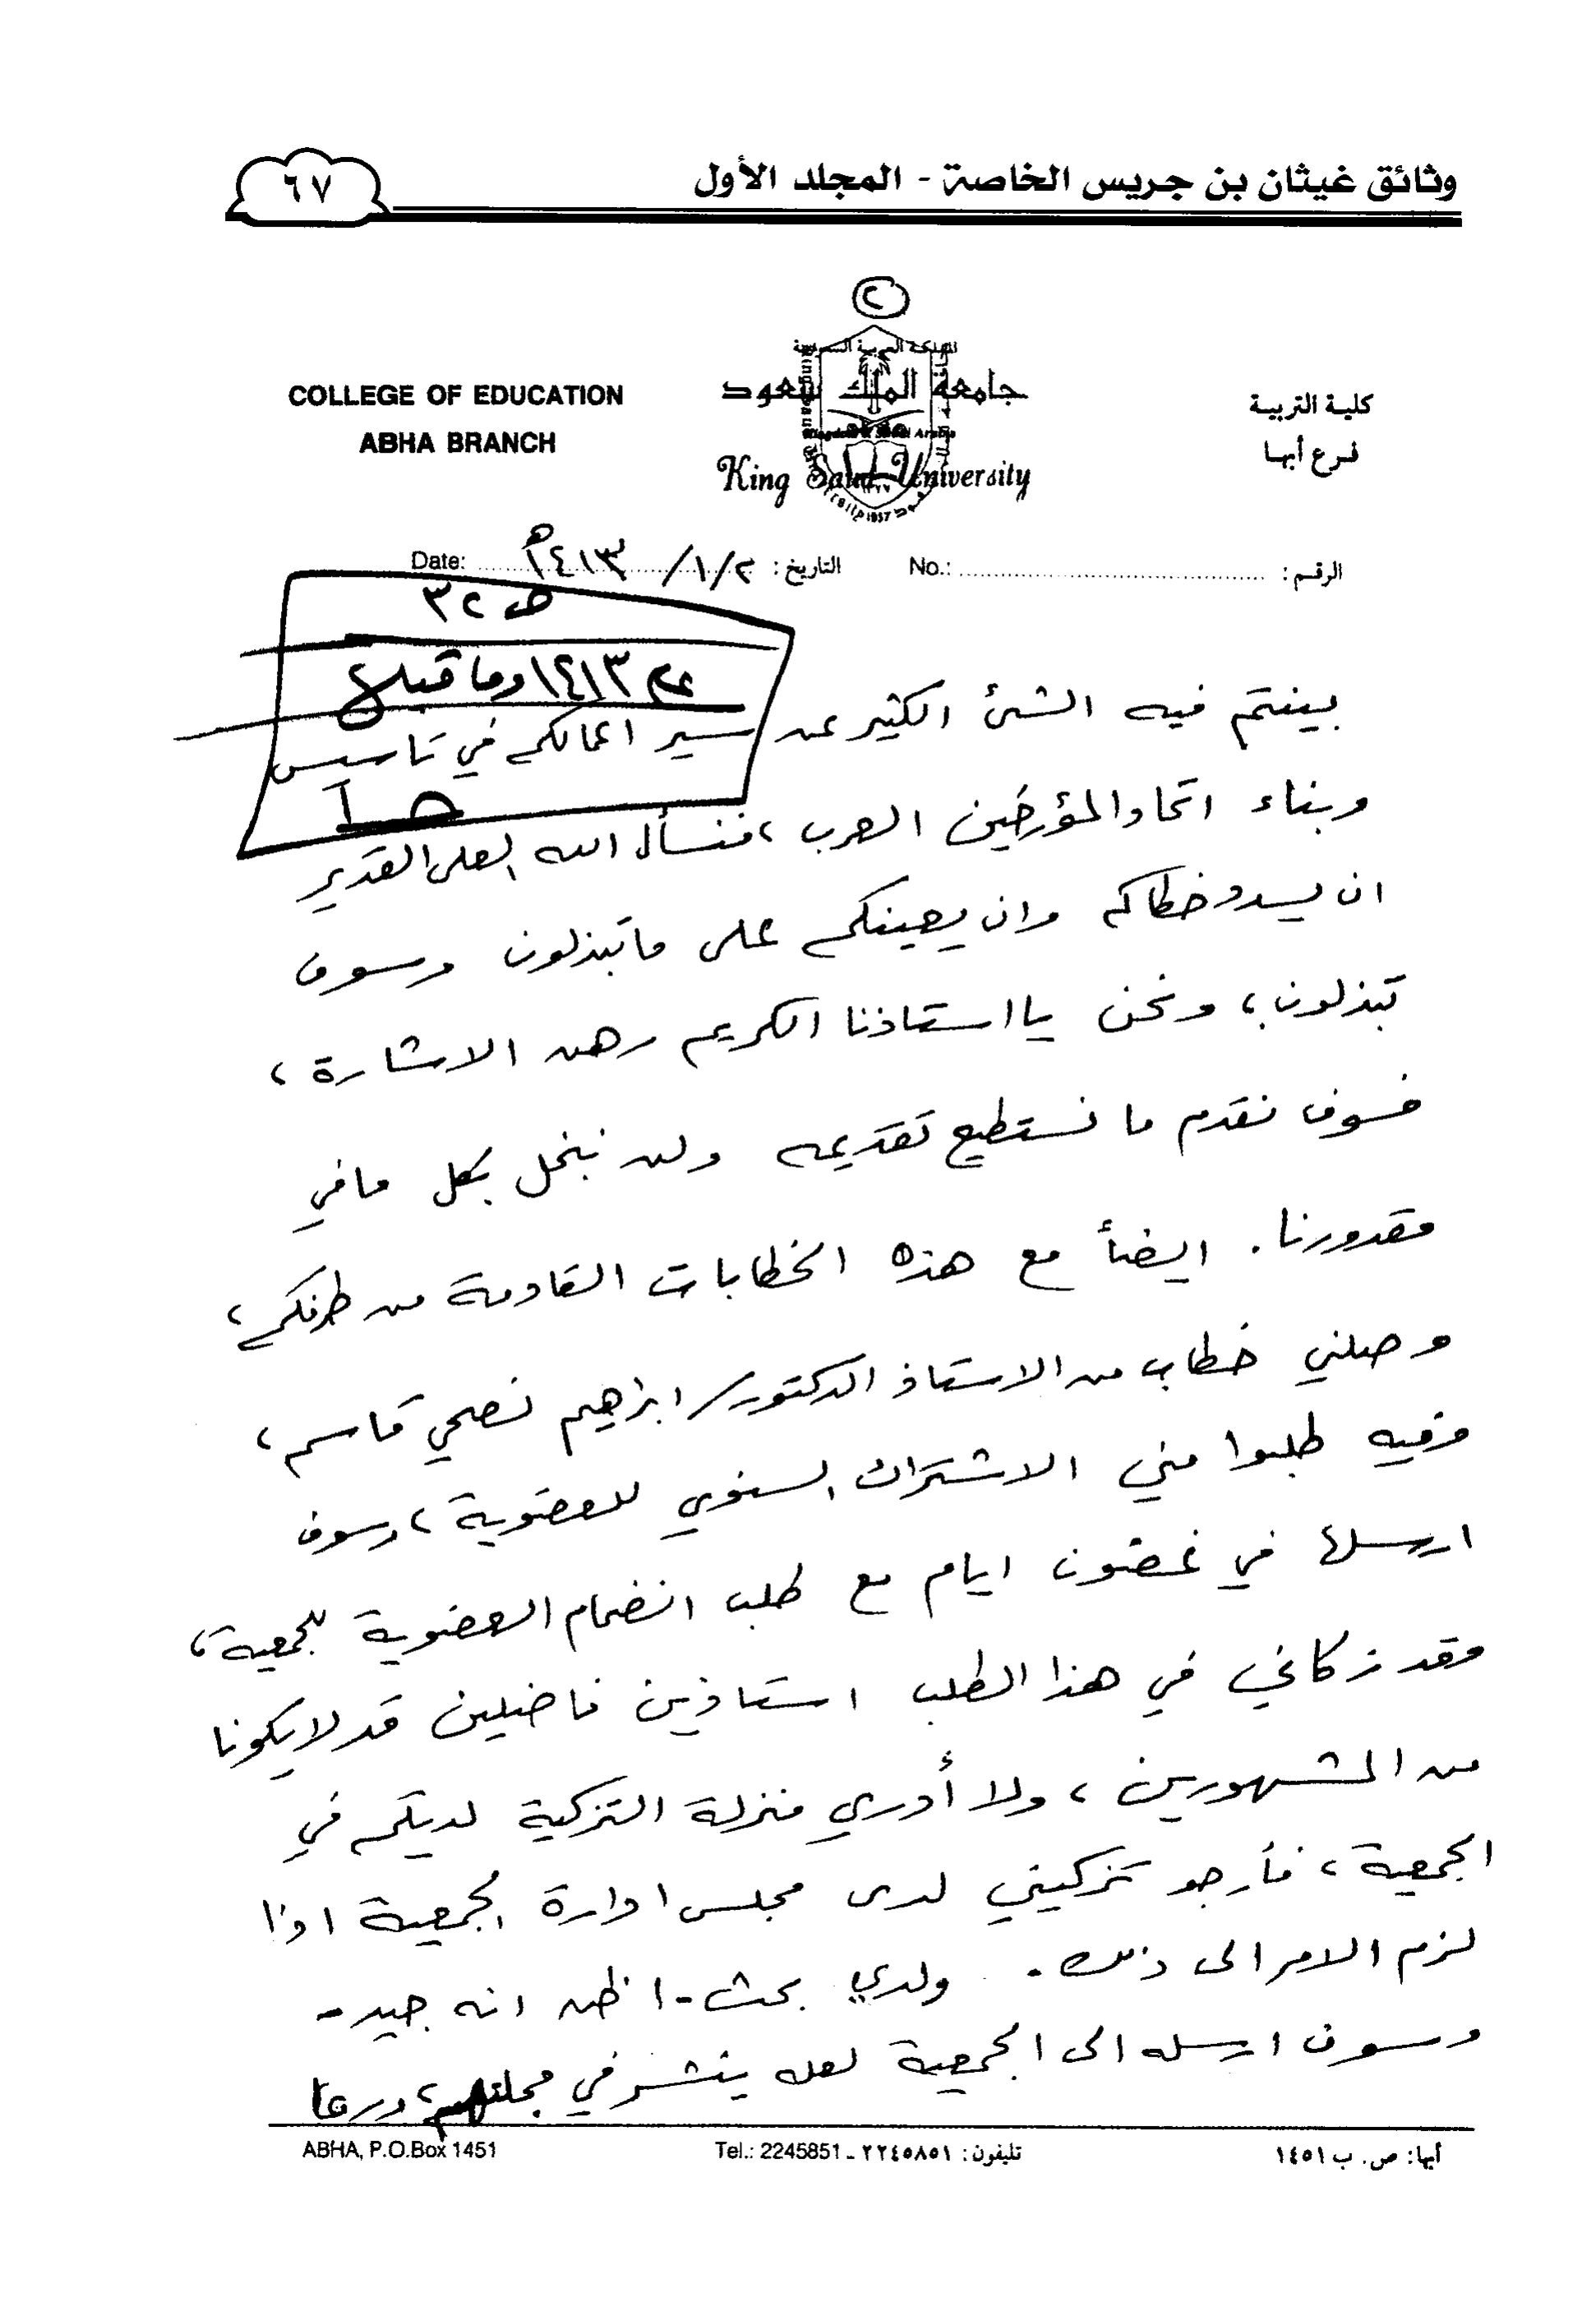 وثائق غيثان بن جريس الخاصة - المجلد الأول
٦٧
٢
المملكة العربية السعودية
جامعة الملك سعود
King Saud University
COLLEGE OF EDUCATION
ABHA BRANCH
كلية التربية
فرع أبها
الرقم: No.:
التاريخ: ٢/١/١٤١٣هـ Date:
ص ٣٢
عام ١٤١٣ وما قبلها
بينتم فيه الشئ الكثير عن سير اعمالكم في تاسيس
وبناء اتحاد المؤرخين العرب، فنسأل الله العلي القدير
ان يسدد خطاكم وان يعينكم على ما تبذلون وسوف
تبذلون، ونحن يا استاذنا الكريم رهن الاشارة،
فسوف نقدم ما نستطيع تقديمه ولن نبخل بكل ما في
مقدورنا. ايضأ مع هذه الخطابات القادمة من طرفكم،
وصلني خطاب من الاستاذ الدكتور/ ابراهيم نصحي قاسم،
وفيه طلبوا مني الاشتراك السنوي للعضوية، وسوف
ارسلها في غضون ايام مع طلب انضمام العضوية للجمعية،
وقد زكاني في هذا الطلب استاذين فاضلين قد لا يكونا
من المشهورين، ولا أدري منزلة التزكية لديكم في
الجمعية، فأرجو تزكيتي لدى مجلس ادارة الجمعية اذا
لزم الامر الى ذلك. ولدي بحث - اظن انه جيد -
وسوف ارسله الى الجمعية لعله ينشر في مجلتهم، وربما
أبها: ص. ب ١٤٥١
تليفون: ٢٢٤٥٨٥١ - Tel.: 2245851
ABHA, P.O.Box 1451